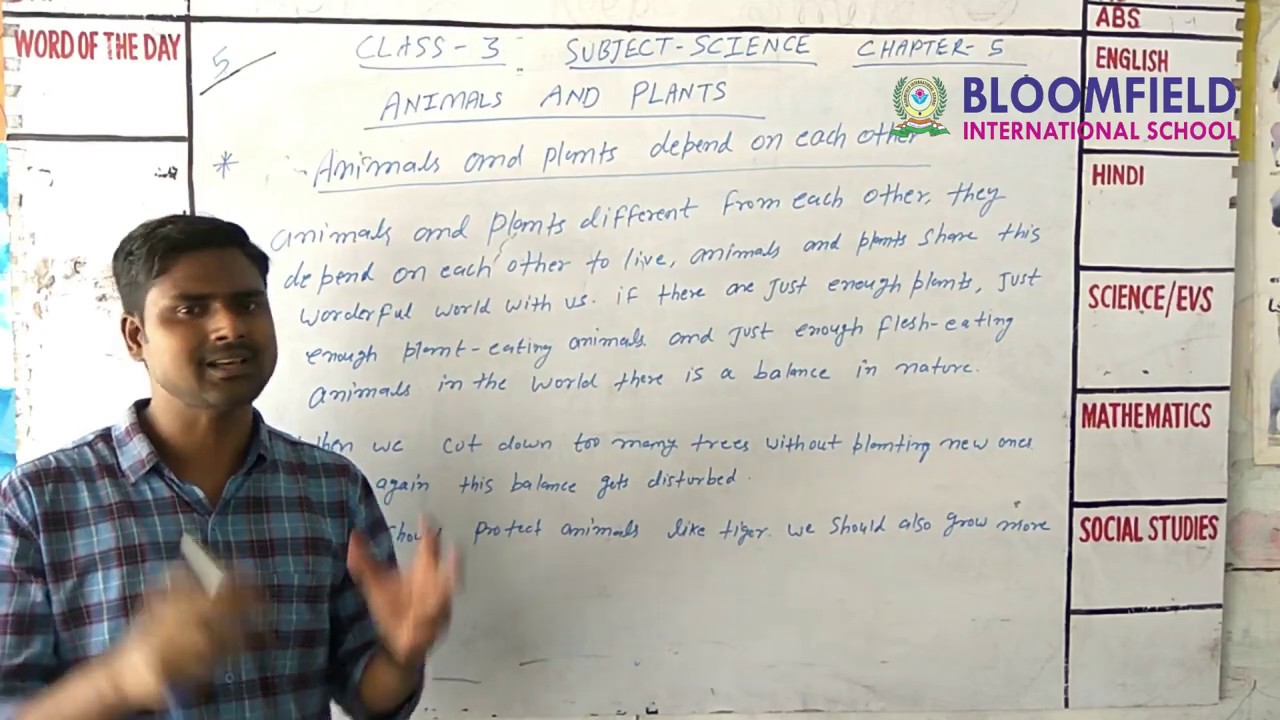 WORD OF THE DAY
5
CLASS-3 SUBJECT-SCIENCE CHAPTER-5
ANIMALS AND PLANTS
* Animals and plants depend on each other
animals and plants different from each other, they
depend on each other to live, animals and plants share this
worderful world with us. if there are just enough plants, just
enough plant-eating animals and just enough flesh-eating
animals in the world there is a balance in nature.
we cut down too many trees without planting new ones
again this balance gets disturbed.
protect animals like tiger. we should also grow more
ABS
ENGLISH
HINDI
SCIENCE/EVS
MATHEMATICS
SOCIAL STUDIES
BLOOMFIELD
INTERNATIONAL SCHOOL